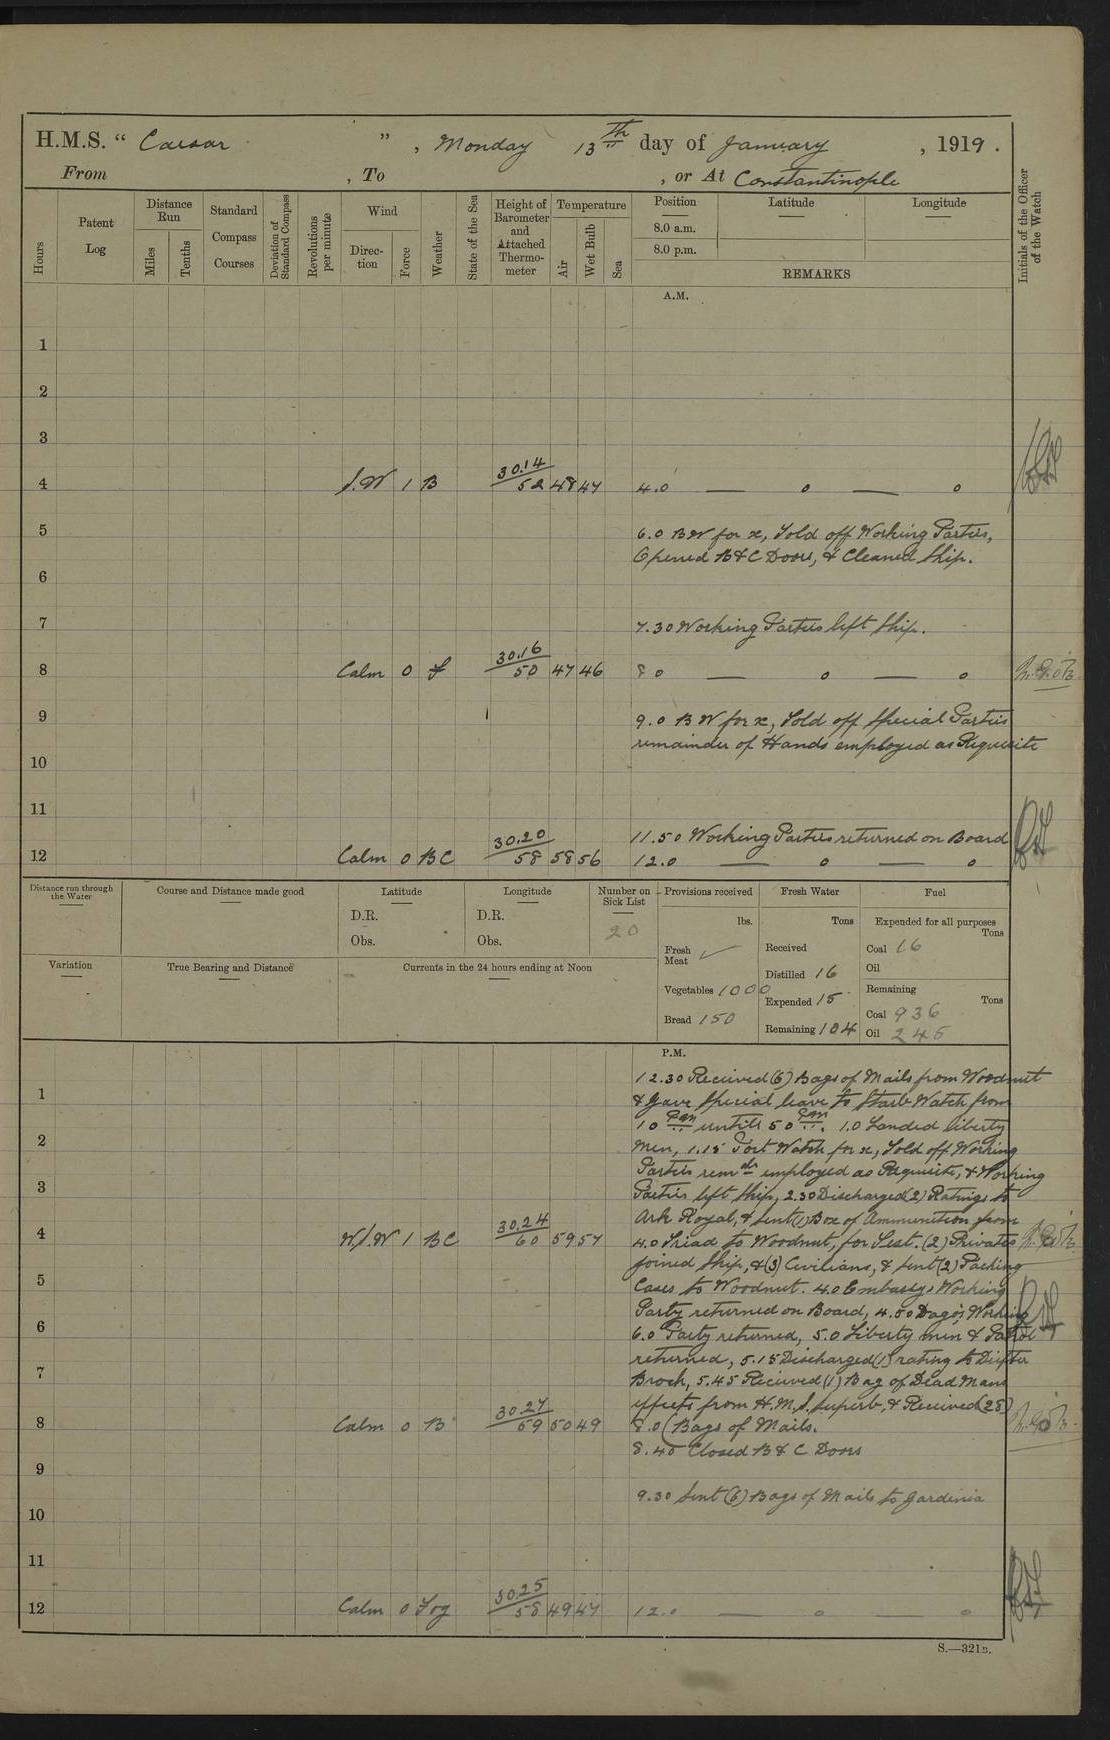 H.M.S. “ Caesar ”, Monday 13th day of January, 1919.
From , To , or At Constantinople
Hours
Patent Log
Distance Run
Miles
Tenths
Standard Compass Courses
Deviation of Standard Compass
Revolutions per minute
Wind
Direction
Force
Weather
State of the Sea
Height of Barometer and Attached Thermometer
Temperature
Air
Wet Bulb
Sea
Position
Latitude
Longitude
8.0 a.m.
8.0 p.m.
REMARKS
Initials of the Officer of the Watch
A.M.
1
2
3
4 S.W 1 B 30.14 52 48 47 4.0 — o — o
5 6.0 BW for x, Told off Working Parties,
Opened B&C Doors, & Cleaned Ship.
6
7 7.30 Working Parties left Ship.
8 Calm 0 F 30.16 50 47 46 8 0 — o — o
9 9.0 B W for x, Told off Special Parties
remainder of Hands employed as Requisite
10
11
11.50 Working Parties returned on Board
12 Calm 0 BC 30.20 58 58 56 12.0 — o — o
Distance run through the Water
Course and Distance made good
Latitude
D.R.
Obs.
Longitude
D.R.
Obs.
Number on Sick List
20
Provisions received
lbs.
Fresh Meat ✓
Vegetables 1000
Bread 150
Fresh Water
Tons
Received
Distilled 16
Expended 15
Remaining 104
Fuel
Expended for all purposes
Tons
Coal 16
Oil
Remaining
Tons
Coal 936
Oil 245
Variation
True Bearing and Distance
Currents in the 24 hours ending at Noon
P.M.
12.30 Recieved (6) Bags of Mails from Woodnut
1
& Gave Special leave to Starb Watch from
1 0 pm untill 5 0 pm. 1.0 Landed liberty
2
Men, 1.15 Port Watch for x, Told off Working
Parties remdr employed as Requisite, & Working
3
Parties left Ship, 2.30 Discharged (2) Ratings to
Ark Royal, & sent (1) Box of Ammunition from
4 W/S.W 1 BC 30.24 60 59 57 4.0 Triad to Woodnut, for Lest. (2) Privates
joined Ship, & (3) Civilians, & sent (2) Packing
5
Cases to Woodnut. 4.0 Embassys Working
Party returned on Board, 4.50 Dago's Working
6
6.0 Party returned, 5.0 Liberty men & Patrol
returned, 5.15 Discharged (1) rating to Drifter
7
Broch, 5.45 Recieved (1) Bag of Dead Mans
effects from H.M.S. Superb, & Recieved (28)
8 Calm 0 B 30.27 59 50 49 8.0 (Bags of Mails.
8.45 Closed B & C Doors
9
9.30 Sent (6) Bags of Mails to Gardenia
10
11
12 Calm 0 Fog 30.25 58 49 47 12.0 — o — o
S.—321B.